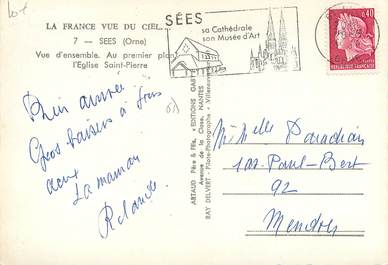 LA FRANCE VUE DU CIEL...
7 — SEES (Orne)
Vue d'ensemble. Au premier plan
l'Eglise Saint-Pierre
SÉES
sa Cathédrale
son Musée d'Art
0,40
REPUBLIQUE FRANCAISE
Bien arrivée
Gros baisers à tous
deux
La maman
Rolande
ARTAUD Père & Fils, "EDITIONS GABY"
Avenue de la Close, NANTES
RAY DELVERT - Place-Photographe - Villeneuve
Mr Melle
Paul-Bert
92